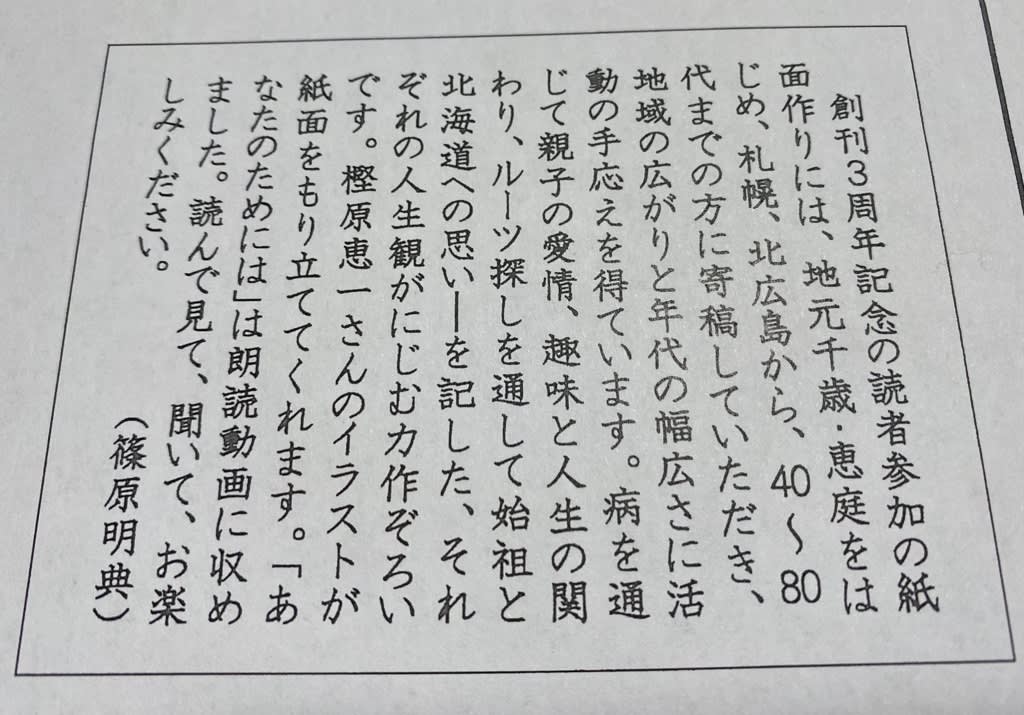 創刊3周年記念の読者参加の紙
面作りには、地元千歳・恵庭をは
じめ、札幌、北広島から、40〜80
代までの方に寄稿していただき、
地域の広がりと年代の幅広さに活
動の手応えを得ています。病を通
じて親子の愛情、趣味と人生の関
わり、ルーツ探しを通して始祖と
北海道への思い―を記した、それ
ぞれの人生観がにじむ力作ぞろい
です。樫原恵一さんのイラストが
紙面をもり立ててくれます。「あ
なたのためには」は朗読動画に収め
ました。読んで見て、聞いて、お楽
しみください。
（篠原明典）